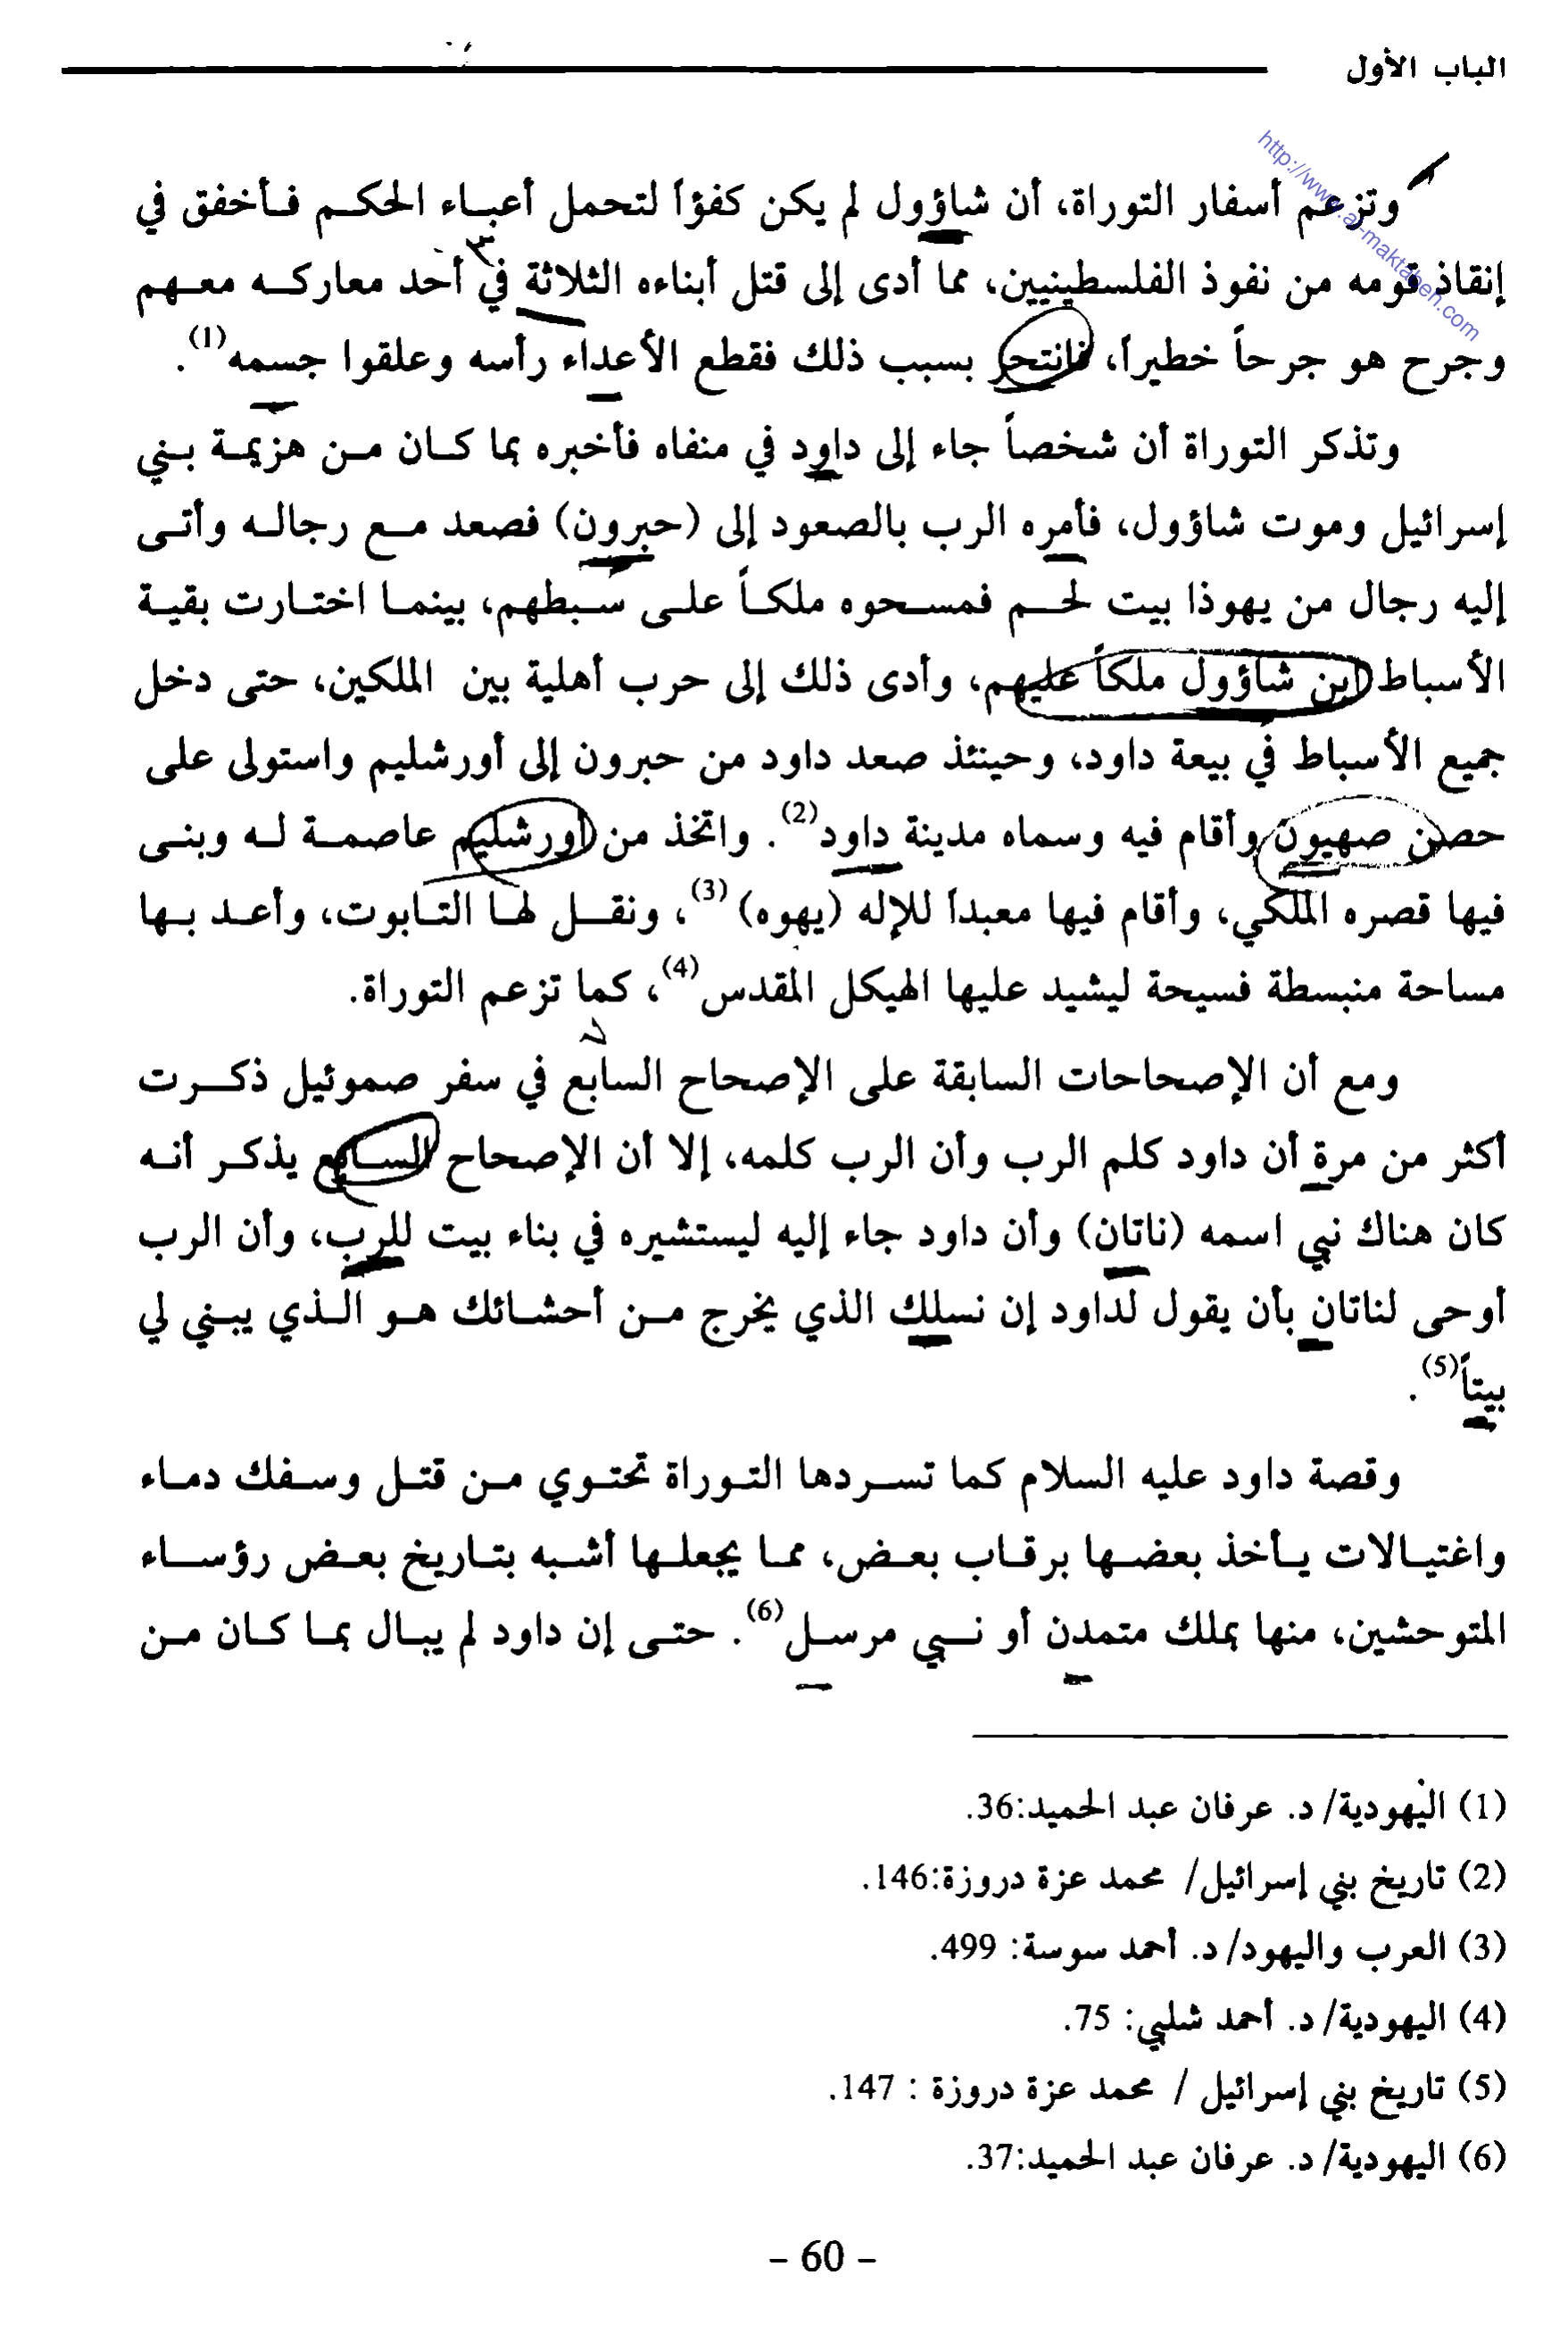 الباب الأول
http://www.al-maktabeh.com
وتزعم أسفار التوراة، أن شاؤول لم يكن كفؤاً لتحمل أعباء الحكم فأخفق في
إنقاذ قومه من نفوذ الفلسطينيين، مما أدى إلى قتل أبناءه الثلاثة في أحد معاركه معهم
وجرح هو جرحاً خطيراً، فانتحر بسبب ذلك فقطع الأعداء رأسه وعلقوا جسمه(1).
وتذكر التوراة أن شخصاً جاء إلى داود في منفاه فأخبره بما كان من هزيمة بني
إسرائيل وموت شاؤول، فأمره الرب بالصعود إلى (حبرون) فصعد مع رجاله وأتى
إليه رجال من يهوذا بيت لحم فمسحوه ملكاً على سبطهم، بينما اختارت بقية
الأسباط ابن شاؤول ملكاً عليهم، وأدى ذلك إلى حرب أهلية بين الملكين، حتى دخل
جميع الأسباط في بيعة داود، وحينئذ صعد داود من حبرون إلى أورشليم واستولى على
حصن صهيون وأقام فيه وسماه مدينة داود(2). واتخذ من أورشليم عاصمة له وبنى
فيها قصره الملكي، وأقام فيها معبداً للإله (يهوه) (3)، ونقل لها التابوت، وأعد بها
مساحة منبسطة فسيحة ليشيد عليها الهيكل المقدس(4)، كما تزعم التوراة.
ومع أن الإصحاحات السابقة على الإصحاح السابع في سفر صموئيل ذكرت
أكثر من مرة أن داود كلم الرب وأن الرب كلمه، إلا أن الإصحاح السابع يذكر أنه
كان هناك نبي اسمه (ناتان) وأن داود جاء إليه ليستشيره في بناء بيت للرب، وأن الرب
أوحى لناتان بأن يقول لداود إن نسلك الذي يخرج من أحشائك هو الذي يبني لي
بيتاً(5).
وقصة داود عليه السلام كما تسردها التوراة تحتوي من قتل وسفك دماء
واغتيالات يأخذ بعضها برقاب بعض، مما يجعلها أشبه بتاريخ بعض رؤساء
المتوحشين، منها بملك متمدن أو نبي مرسل(6). حتى إن داود لم يبال بما كان من
(1) اليهودية/ د. عرفان عبد الحميد:36.
(2) تاريخ بني إسرائيل/ محمد عزة دروزة:146.
(3) العرب واليهود/ د. أحمد سوسة: 499.
(4) اليهودية/ د. أحمد شلبي: 75.
(5) تاريخ بني إسرائيل / محمد عزة دروزة : 147.
(6) اليهودية/ د. عرفان عبد الحميد:37.
- 60 -